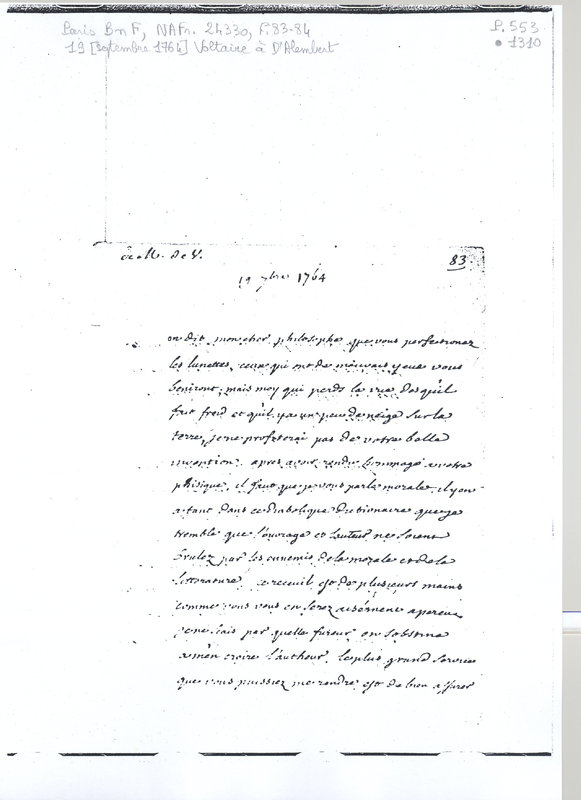 Paris BnF, NAFr. 24330, f. 83-84
P. 553
19 [septembre 1764] Voltaire à D'Alembert
• 1310
de M. de V.
83.
19 7bre 1764
on dit mon cher philosophe que vous perfectionez
les lunettes, ceux qui ont de mauvais yeux vous
beniront, mais moy qui perds la vue des qu'il
fait froid et qu'il y a un peu de neige sur la
terre, je ne profiterai pas de votre belle
invention. apres avoir rendu hommage a votre
phisique, il faut que je vous parle morale. il y en
a tant dans ce diabolique dictionaire que je
tremble que l'ouvrage et l'auteur ne soient
brulez par les ennemis de la morale et de la
litterature. ce receuil est de plusieurs mains
comme vous vous en serez aisément aperceu
je ne scais par quelle fureur on s'obstine
a m'en croire l'autheur. le plus grand service
que vous puissiez me rendre est de bien assurer